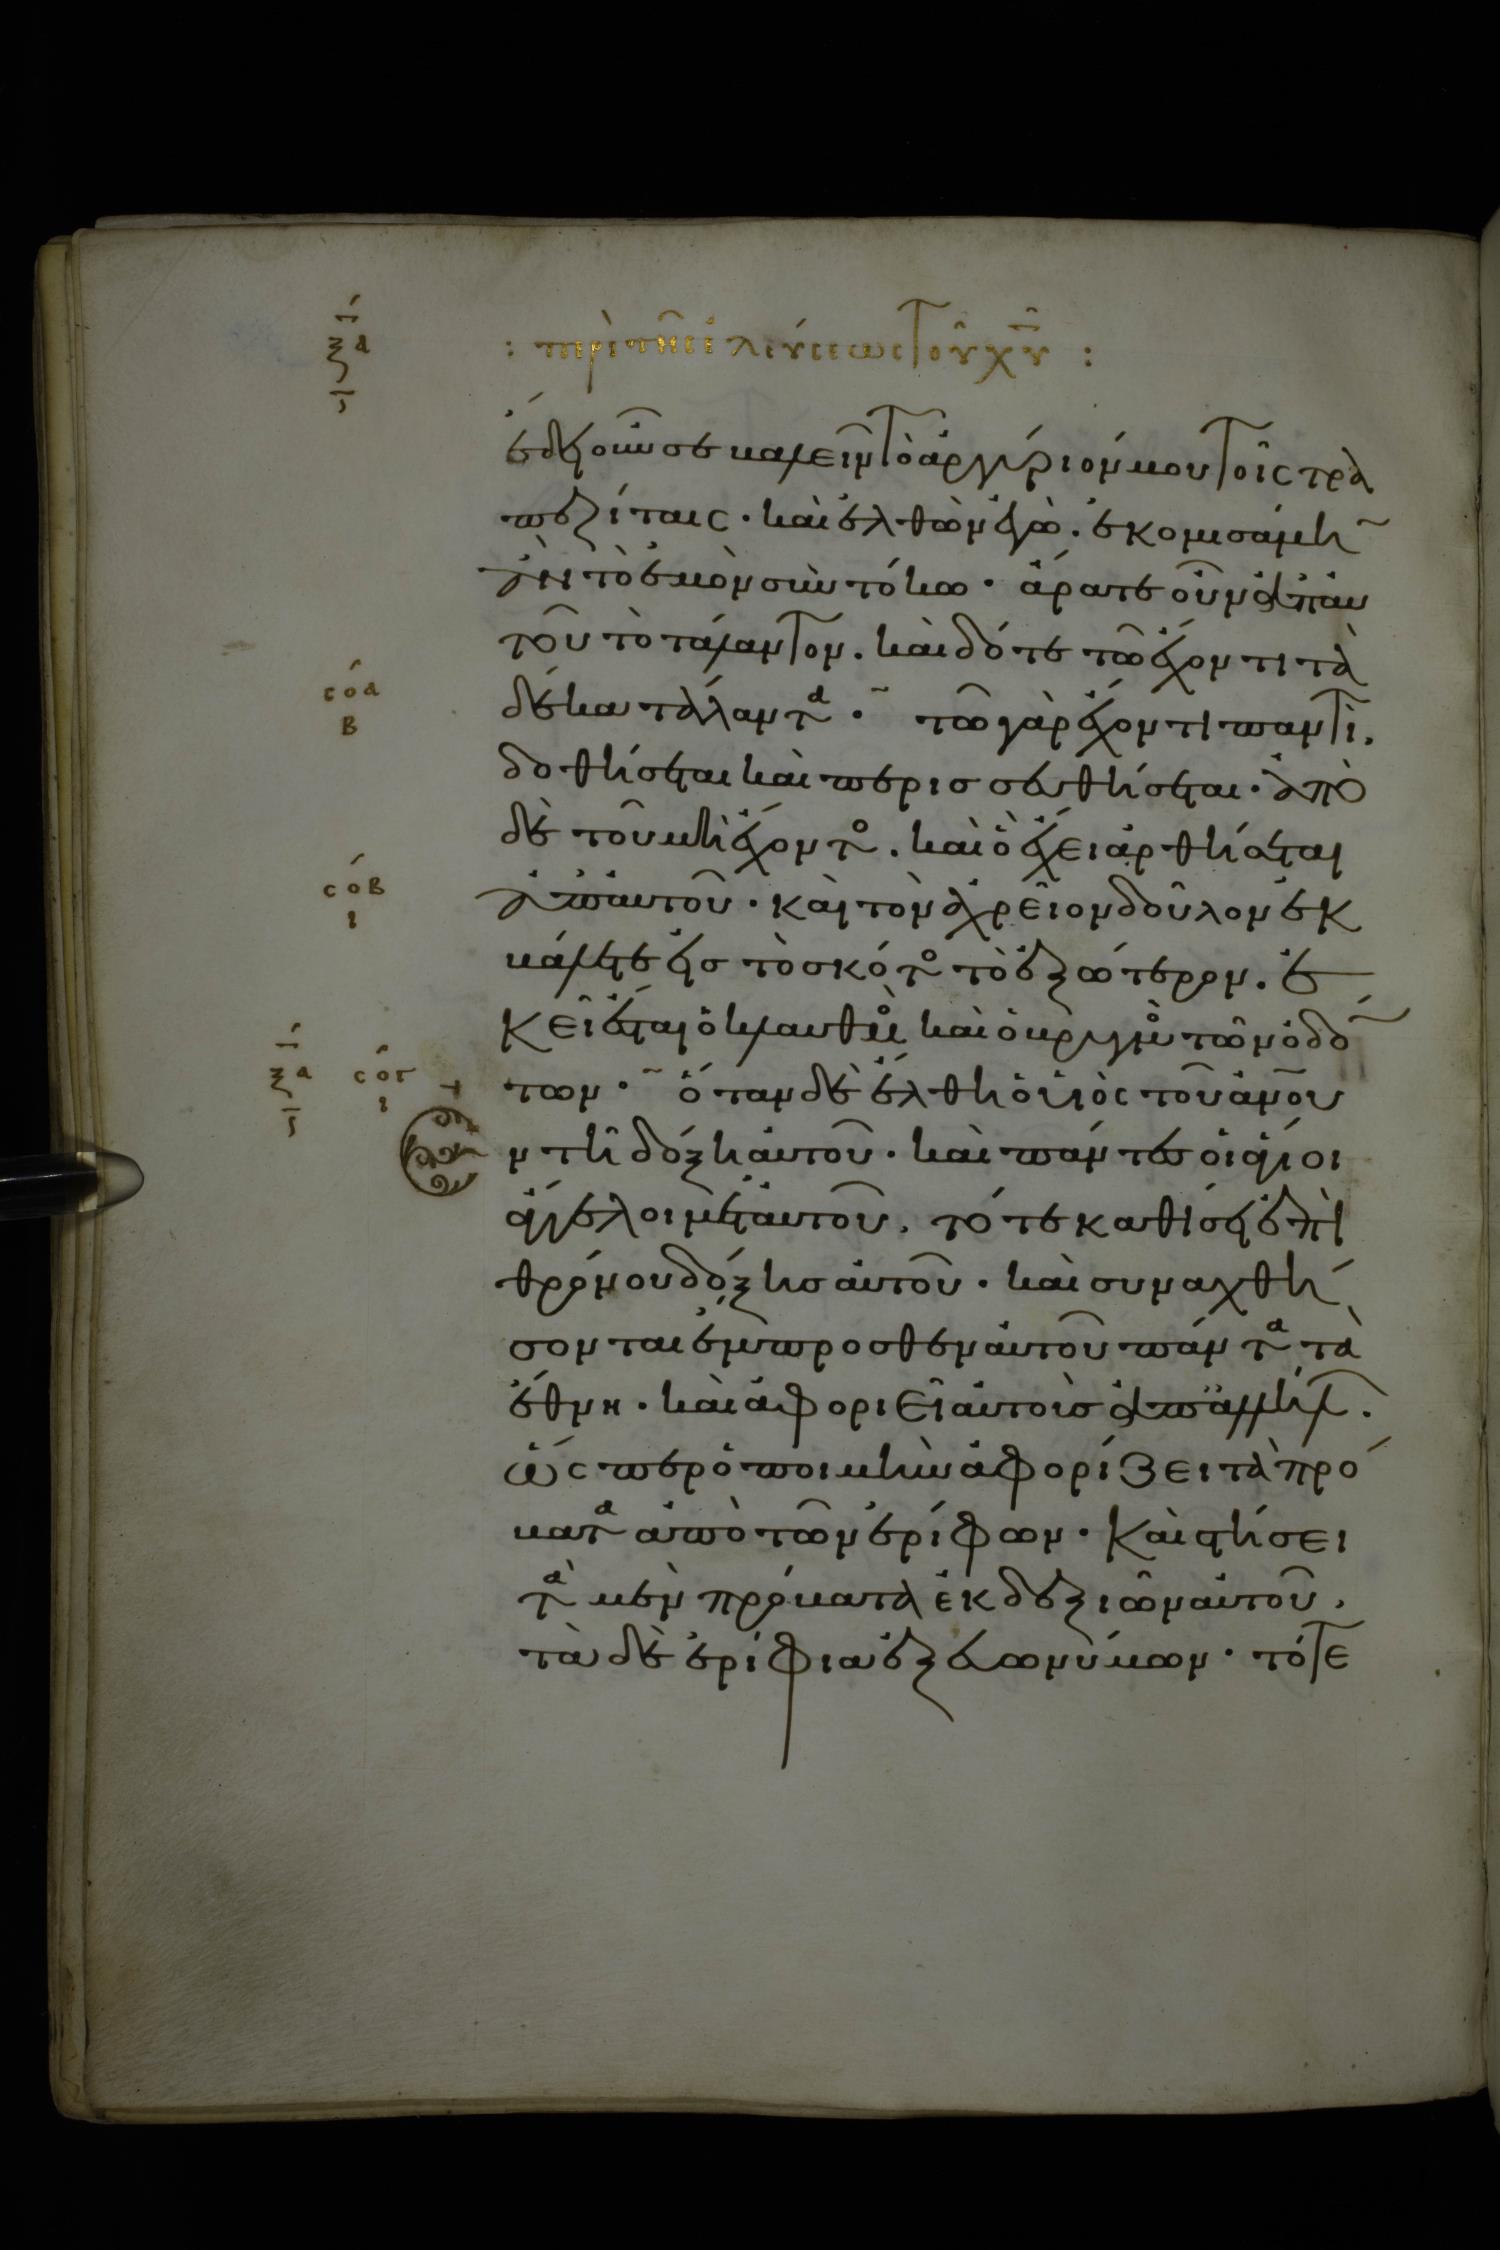 ξα
: περὶ τῆς ἐλεύσεως τοῦ χυ :
ἔδει οὖν σε βαλεῖν τὸ ἀργύριόν μου τοῖς τρα
πεζίταις· καὶ ἐλθὼν ἐγὼ. ἐκομισάμη
ἂν τὸ ἐμὸν σὺν τόκω· ἄρατε οὖν ἀπ' αὐ
τοῦ τὸ τάλαντον. καὶ δότε τῶ ἔχοντι τὰ
σοα
β
δέκα τάλαντα· τῶ γὰρ ἔχοντι παντὶ.
δοθήσεται καὶ περισσευθήσεται· ἀπὸ
δὲ τοῦ μὴ ἔχοντος. καὶ ὃ ἔχει ἀρθήσεται
σοβ
ι
ἀπ' αὐτοῦ· καὶ τὸν ἀχρεῖον δοῦλον ἐκ
βάλετε εἰς τὸ σκότος τὸ ἐξώτερον. ἐ
κεῖ ἔσται ὁ κλαυθμὸς καὶ ὁ βρυγμὸς τῶν ὀδό
ξα σογ
ι
των· ὅταν δὲ ἔλθη ὁ υἱὸς τοῦ ἀνου
Ἐν τῆ δόξη αὐτοῦ· καὶ πάντες οἱ ἅγιοι
ἄγγελοι μετ' αὐτοῦ. τότε καθίσει ἐπὶ
θρόνου δόξης αὐτοῦ· καὶ συναχθή
σονται ἔμπροσθεν αὐτοῦ πάντα τὰ
ἔθνη· καὶ ἀφοριεῖ αὐτοὺς ἀπ' ἀλλήλων.
ὥσπερ ὁ ποιμὴν ἀφορίζει τὰ πρό
βατα ἀπὸ τῶν ἐρίφων· καὶ στήσει
τὰ μὲν πρόβατα ἐκ δεξιῶν αὐτοῦ.
τὰ δὲ ἐρίφια ἐξ εὐωνύμων· τότε